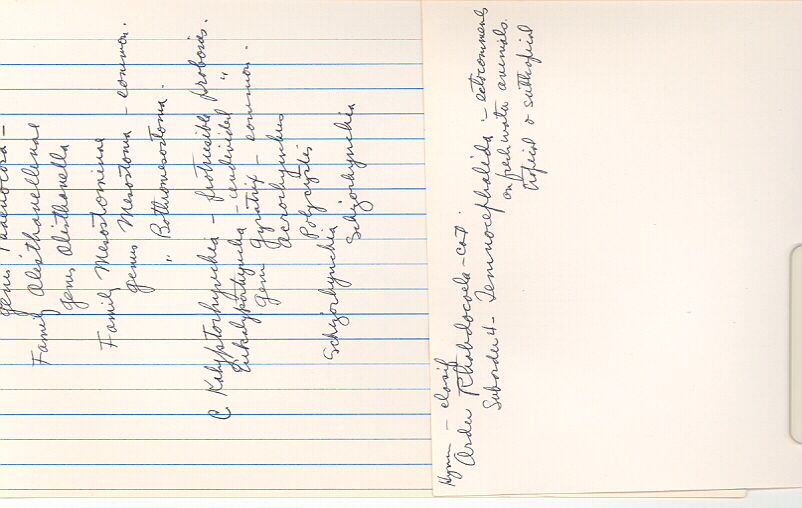 Family Olisthanellinae
genus Olisthanella
Family Mesostominae
genus Mesostoma - common.
" Bothromesostoma.
C Kalyptorhynchia - protrusible proboscis.
Eukalyptorhyncha - undivided "
Gen Gyratrix - common.
Acrorhynchus
Polycystis
Schizorhynchia
Schizorhynchia
Hyman - classif
Order Rhabdocoela - cont.
Suborder 4 - Temnocephalida - ectocommens
on freshwater animals.
tropical or subtropical